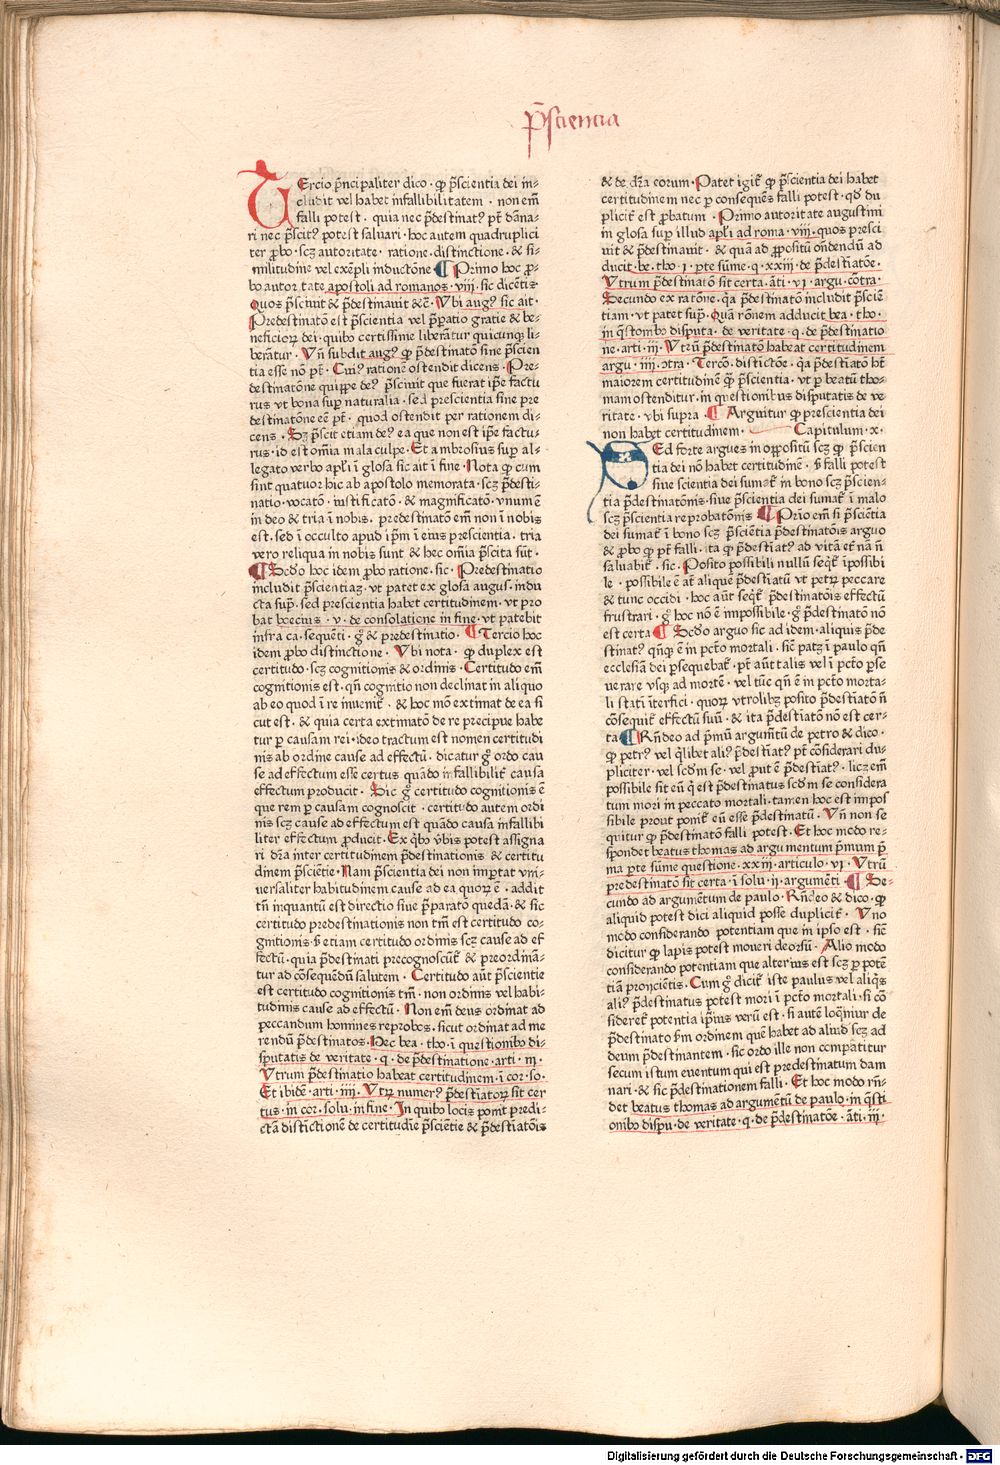 p̄sciencia
TErcio p̄ncipaliter dico · ꝙ p̄scientia dei in⸗
cludit vel habet infallibilitatem · non em̄
falli potest · quia nec p̄destinatꝰ pt̄ dāna⸗
ri nec p̄scitꝰ potest saluari · hoc autem quadruplici
ter ꝓbo · scꝫ autoritate · ratione · distinctione · & si⸗
militudine vel exēpli inductōne ¶ Primo hoc ꝓ⸗
bo autoritate apostoli ad romanos · viii · sic dicētis
Quos p̄sciuit & p̄destinauit &c̄ · Vbi augꝰ sic ait ·
Predestinatō est p̄scientia vel p̄paratio gratie & be⸗
neficioꝝ dei · quibꝰ certissime liberātur quicunqꝫ li⸗
berātur · Vn̄ subdit augꝰ ꝙ p̄destinatō sine p̄scien
tia esse nō pt̄ · Cuiꝰ rationē ostendit dicens · Pre⸗
destinatōne quippe deꝰ p̄sciuit que fuerat ip̄e factu
rus vt bona supernaturalia · sed prescientia sine pre
destinatōne eē pt̄ · quod ostendit per rationem di⸗
cens · Sꝫ p̄scit etiam deꝰ ea que non est ip̄e factu⸗
rus · id est om̄ia mala culpe · Et ambrosius suꝑ al⸗
legato verbo apl̄i ī glosa sic ait ī fine · Nota ꝙ cum
sint quatuor hic ab apostolo memorata · scꝫ p̄desti⸗
natio · vocatō · iustificatō · & magnificatō · vnum ē
in deo & tria ī nobis · predestinatō em̄ non ī nobis
est · sed ī occulto apud ip̄m ī eius prescientia · tria
vero reliqua in nobis sunt & hec om̄ia p̄scita sūt ·
¶ Scd̄o hoc idem ꝓbo ratione · sic · Predestinatio
includit p̄scientiaꝫ · vt patet ex glosa augus · indu
cta supͣ · sed prescientia habet certitudinem · vt pro
bat boecius · v · de consolatione in fine · vt patebit
infra ca · sequēti · gͦ & predestinatio · ¶ Tercio hoc
idem ꝓbo distinctione · Vbi nota · ꝙ duplex est
certitudo · scꝫ cognitionis & ordinis · Certitudo em̄
cognitionis est · qn̄ cognitio non declinat in aliquo
ab eo quod ī re inuenit̄ · & hoc mō extimat de ea si
cut est · & quia certa extimatō de re precipue habe
tur ꝑ causam rei · ideo tractum est nomen certitudi
nis ab ordine cause ad effectū · dicatur gͦ ordo cau
se ad effectum esse certus quādo infallibilit̄ causa
effectum producit · Sic gͦ certitudo cognitionis ē
que rem ꝑ causam cognoscit · certitudo autem ordi
nis scꝫ cause ad effectum est quādo causa infallibi
liter effectum ꝓducit · Ex qͥbꝰ v̄bis potest assigna
ri dr̄a inter certitudinem p̄destinationis & certitu
dinem p̄sciētie · Nam p̄scientia dei non importat vni⸗
uersaliter habitudinem cause ad ea quoꝝ ē · addit
tn̄ inquantū est directio siue p̄paratō quedā · & sic
certitudo predestinationis non tm̄ est certitudo co⸗
gnitionis · sꝫ etiam certitudo ordinis scꝫ cause ad ef
fectū · quia p̄destinati precognoscūt̄ & preordinā⸗
tur ad cōsequēdū salutem · Certitudo aūt p̄scientie
est certitudo cognitionis tm̄ · non ordinis vel habi⸗
tudinis cause ad effectū · Non em̄ deus ordinat ad
peccandum homines reprobos · sicut ordinat ad me
rendū p̄destinatos · Hec bea · tho · ī questionibꝰ di⸗
sputatis de veritate · q · de p̄destinatione · arti · iii ·
Vtrum p̄destinatio habeat certitudinem · ī cor · so ·
Et ibidē · arti · iiii · Vtrꝫ numerꝰ p̄destiatoꝝ sit cer
tus · in cor · solu · in fine · In quibꝰ locis ponit predi⸗
ctā distinctionē de certitudīe p̄sciētie & p̄destiatōis
& de dr̄a eorum · Patet igit̄ ꝙ p̄scientia dei habet
certitudinem nec ꝑ consequēs falli potest · qd̄ du
plicit̄ est ꝓbatum · Primo autoritate augustini
in glosa super illud apl̄i ad roma · viii · quos presci
uit & p̄destinauit · & quā ad ꝓpositū oñdendū ad
ducit · be · tho · i · ꝑte sūme · q · xxiii · de p̄destiatōe ·
Vtrum p̄destinatō sit certa · āti · vi · argu · cōtra ·
Secundo ex ratōne · qꝛ p̄destinatō includit p̄sciē
tiam · vt patet supͣ · Quā rōnem adducit bea · tho ·
in q̄stōnibꝰ disputa · de veritate · q · de p̄destinatio
ne · arti · iii · Vtrū p̄destinatō habeat certitudinem
argu · iiii · ꝯtra · Tercō · distictōe · qꝛ p̄destiatō hꝫ
maiorem certitudinē ꝙ̄ p̄scientia · vt ꝑ beatū tho⸗
mam ostenditur · in questionibus disputatis de ve
ritate · vbi supra · ¶ Arguitur ꝙ prescientia dei
non habet certitudinem · Capitulum · x ·
SEd forte argues in oppositū scꝫ ꝙ p̄scien
tia dei nō habet certitudinē · sꝫ falli potest
siue scientia dei sumat̄ in bono scꝫ p̄scien⸗
tia p̄destinatōnis · siue p̄scientia dei sumat̄ ī malo
scꝫ p̄scientia reprobatōnis ¶ Prīo em̄ si p̄sciētia
dei sumat̄ ī bono scꝫ p̄sciētia p̄destinatōis arguo
& ꝓbo ꝙ pt̄ falli · ita ꝙ p̄destiatꝰ ad vitā et̄nā n̄
saluabit̄ · sic · Posito possibili nullū seqͥt̄ īpossibi
le · possibile ē āt aliquē p̄destiatū vt petrꝫ peccare
& tunc occidi · hoc aūt seqͥt̄ p̄destinatōis effectū
frustrari · gͦ hoc nō ē impossibile · gͦ p̄destinatō nō
est certa ¶ Scd̄o arguo sic ad idem · aliquis p̄de
stinatꝰ qn̄qꝫ ē in pctō mortali · sic̄ patꝫ ī paulo qn̄
ecclesiā dei persequebat̄ · pt̄ aūt talis vel ī pctō ꝑse
uerare vsqꝫ ad mortē · vel tūc qn̄ ē in pctō morta⸗
li stati īterfici · quoꝝ vtrolibꝫ posito p̄destiatō n̄
cōsequit̄ effectū suū · & ita p̄destiatō nō est cer⸗
ta ¶ Rn̄deo ad pͥmū argum̄tū de petro & dico ·
ꝙ petrꝰ vel qͥlibet aliꝰ p̄destiatꝰ pt̄ cōsiderari du⸗
pliciter · vel scd̄m se · vel ꝓut ē p̄destiatꝰ · licꝫ em̄
possibile sit eū qͥ est p̄destinatus scd̄m se considera
tum mori in peccato mortali · tamen hoc est impos
sibile prout ponit̄ eū esse p̄destinatū · Vn̄ non se
quitur ꝙ p̄destinatō falli potest · Et hoc modo re⸗
spondet beatus thomas ad argumentum pͥmum pͥ
ma ꝑte sūme questione · xxiii · articulo · vi · Vtrū
predestinatō sit certa · ī solu · ii · argumēti ¶ Se⸗
cundo ad argumētum de paulo · Rn̄deo & dico · ꝙ
aliquid potest dici aliquid posse duplicit̄ · Vno
modo considerando potentiam que in ipso est · sic̄
dicitur ꝙ lapis potest moueri deorsū · Alio modo
considerando potentiam que alterius est scꝫ ꝑ potē
tiā proijciētis · Cum gͦ dicit̄ iste paulus vel aliqͥs
aliꝰ p̄destinatus potest mori ī pctō mortali · si cō
sideret̄ potentia ip̄ius verū est · si autē loqͥmur de
p̄destinato ẜm ordinem quē habet ad aliud scꝫ ad
deum p̄destinantem · sic ordo ille non compatitur
secum istum euentum qui est predestinatum dam
nari · & sic p̄destinationem falli · Et hoc modo rn̄⸗
det beatus thomas ad argumētū de paulo · in qͣsti
onibꝰ dispu · de veritate · q · de p̄destinatōe · āti · iii ·
Digitalisierung gefördert durch die Deutsche Forschungsgemeinschaft - DFG